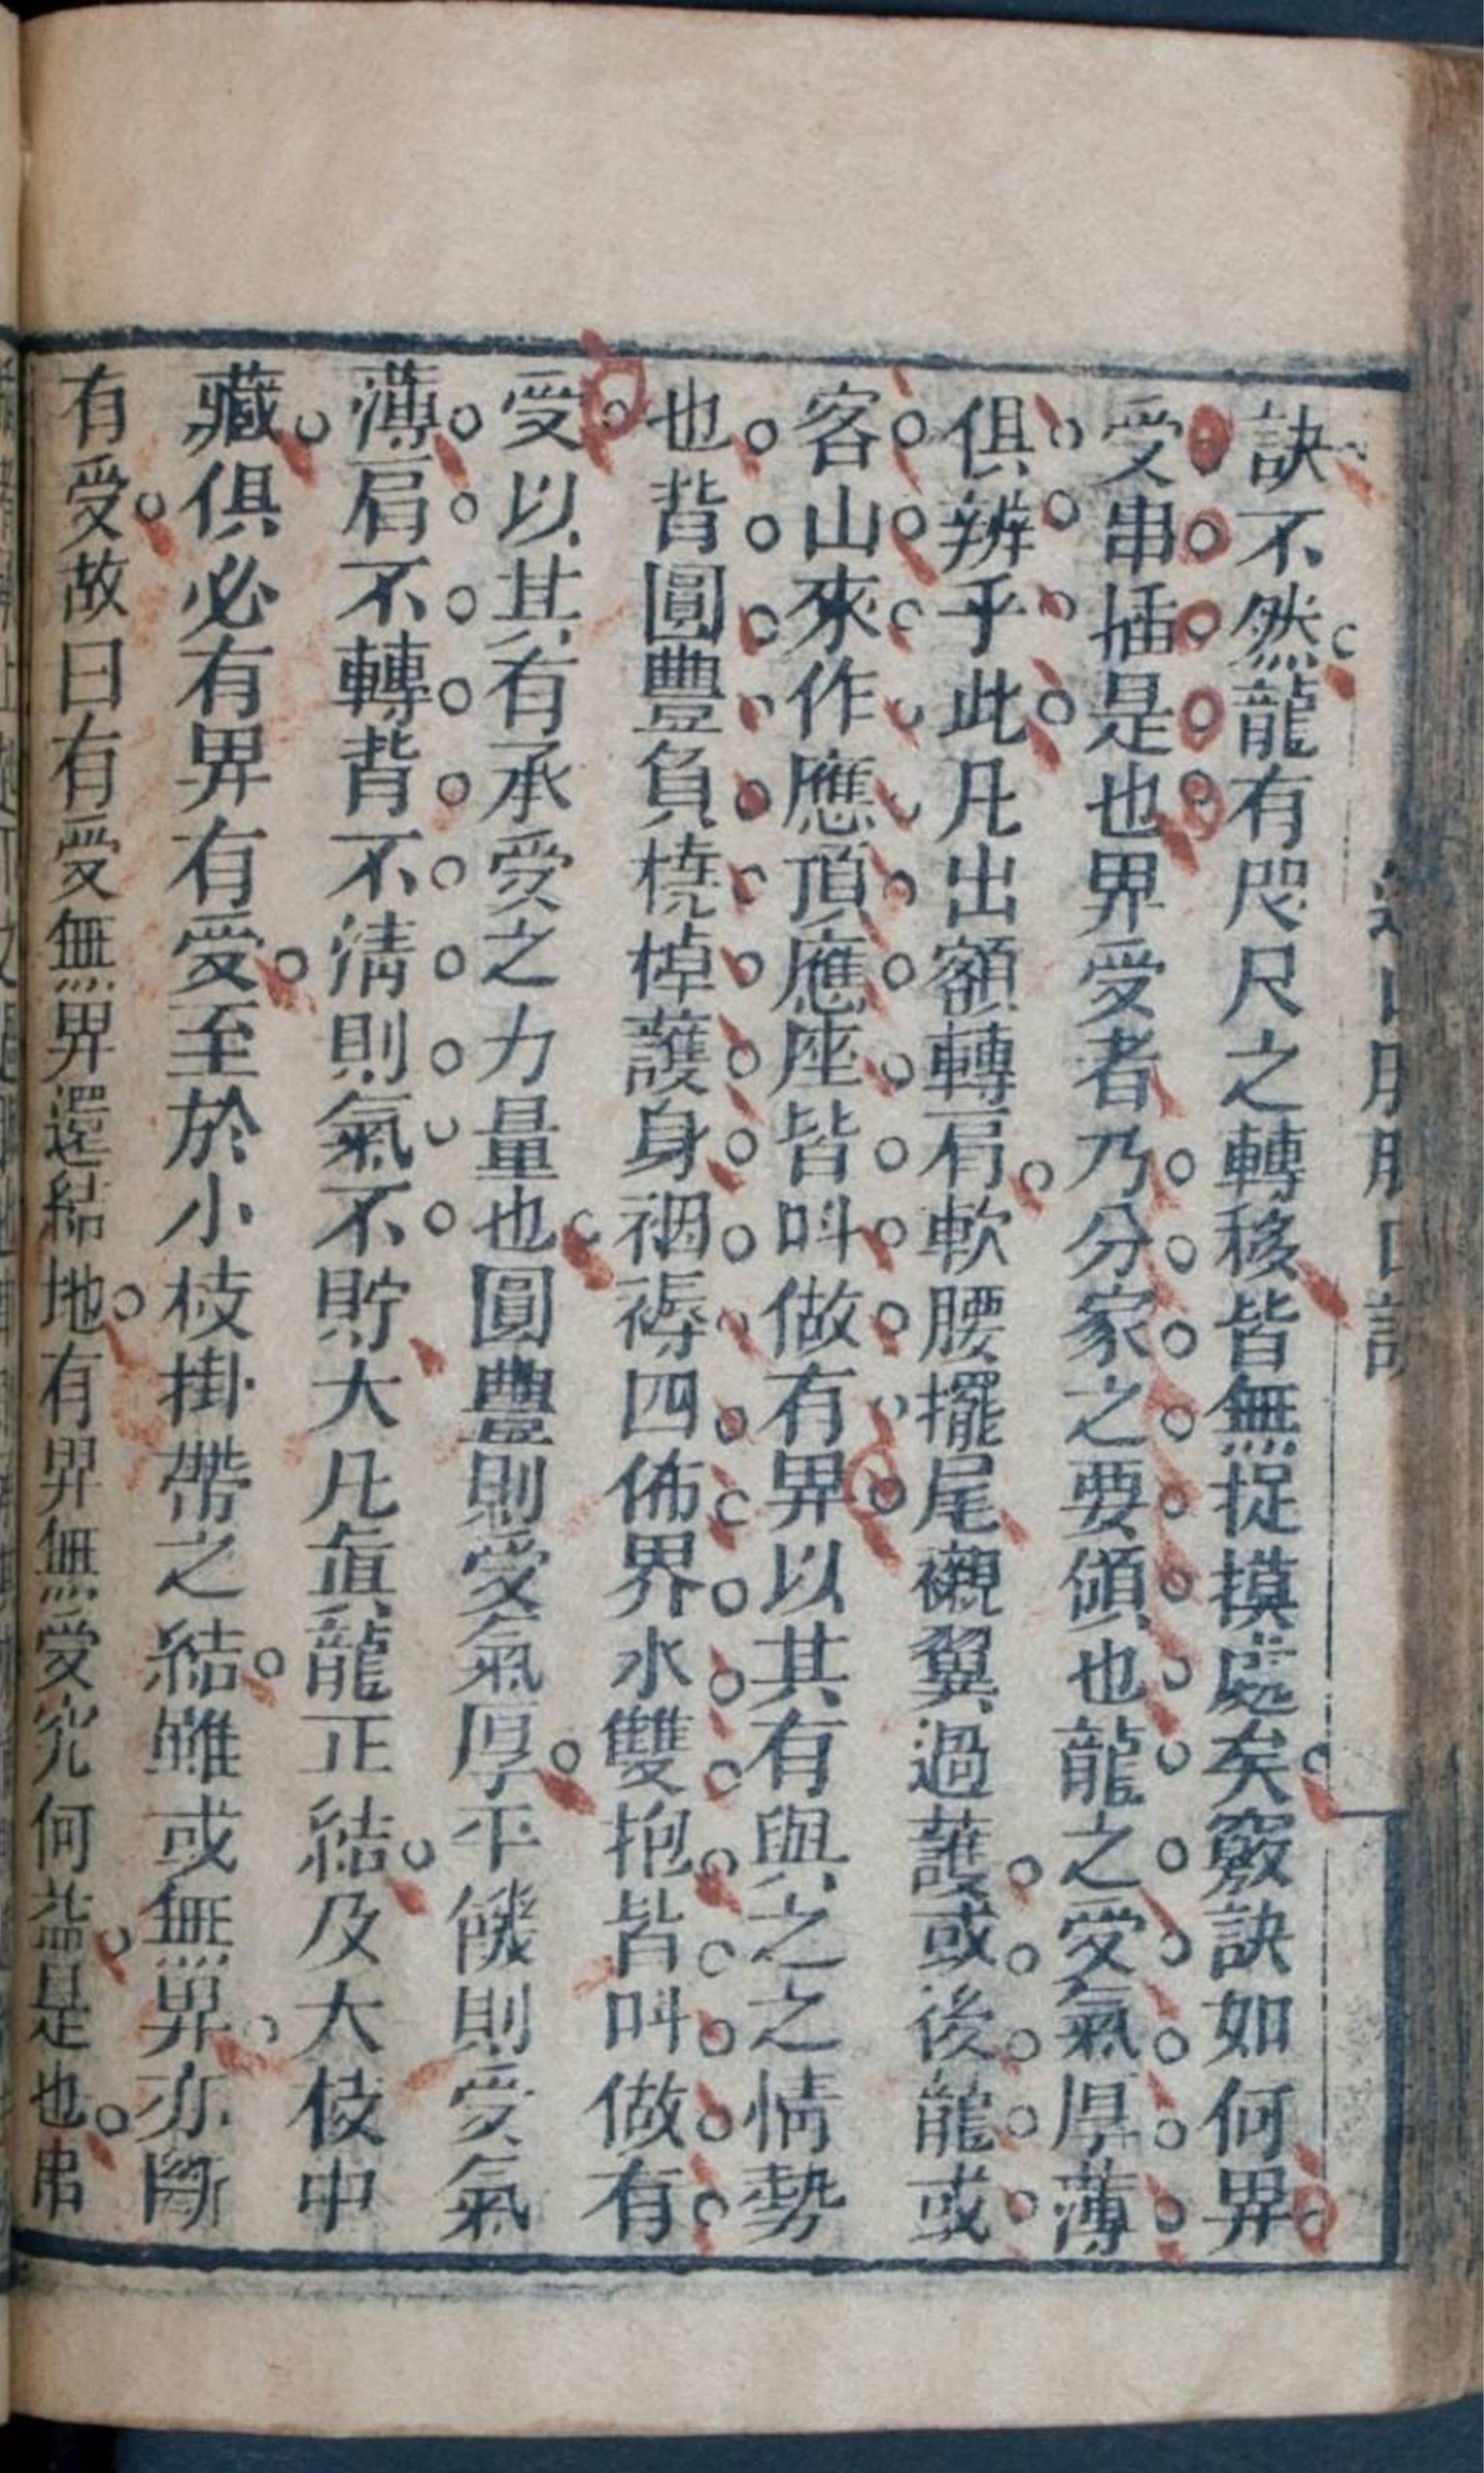 訣不然龍有咫尺之轉移皆無捉摸處矣竅訣如何界
受串插是也界受者乃分家之要領也龍之受氣厚薄
俱辨乎此凡出額轉肩軟腰擺尾襯翼過護或後龍或
客山來作應頂應座皆叫做有界以其有與之之情勢
也背圓豐負橈棹護身裀褥四佈界水雙抱皆叫做有
受以其有承受之力量也圓豐則受氣厚平餓則受氣
薄肩不轉背不淸則氣不貯大凡眞龍正結及大枝中
藏俱必有界有受至於小枝掛帶之結雖或無界亦斷
有受故曰有受無界還結地有界無受究何益是也串